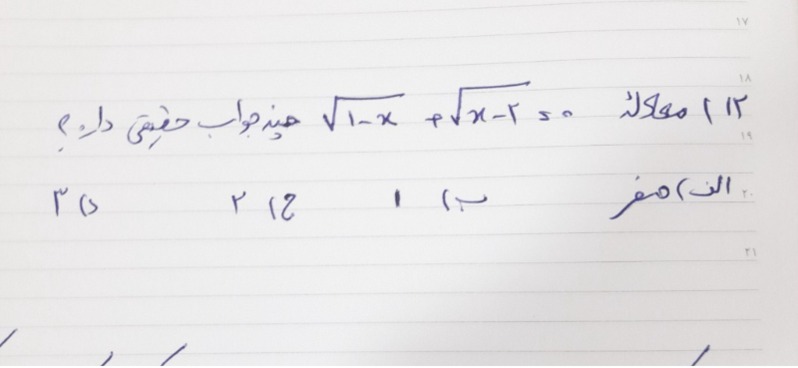 ۱۷
۱۸
۱۲) معادله √۱-x + √x-۲ = ۰ چند جواب حقیقی دارد؟
۱۹
الف) صفر ب) ۱ ج) ۲ د) ۳
۲۰
۲۱